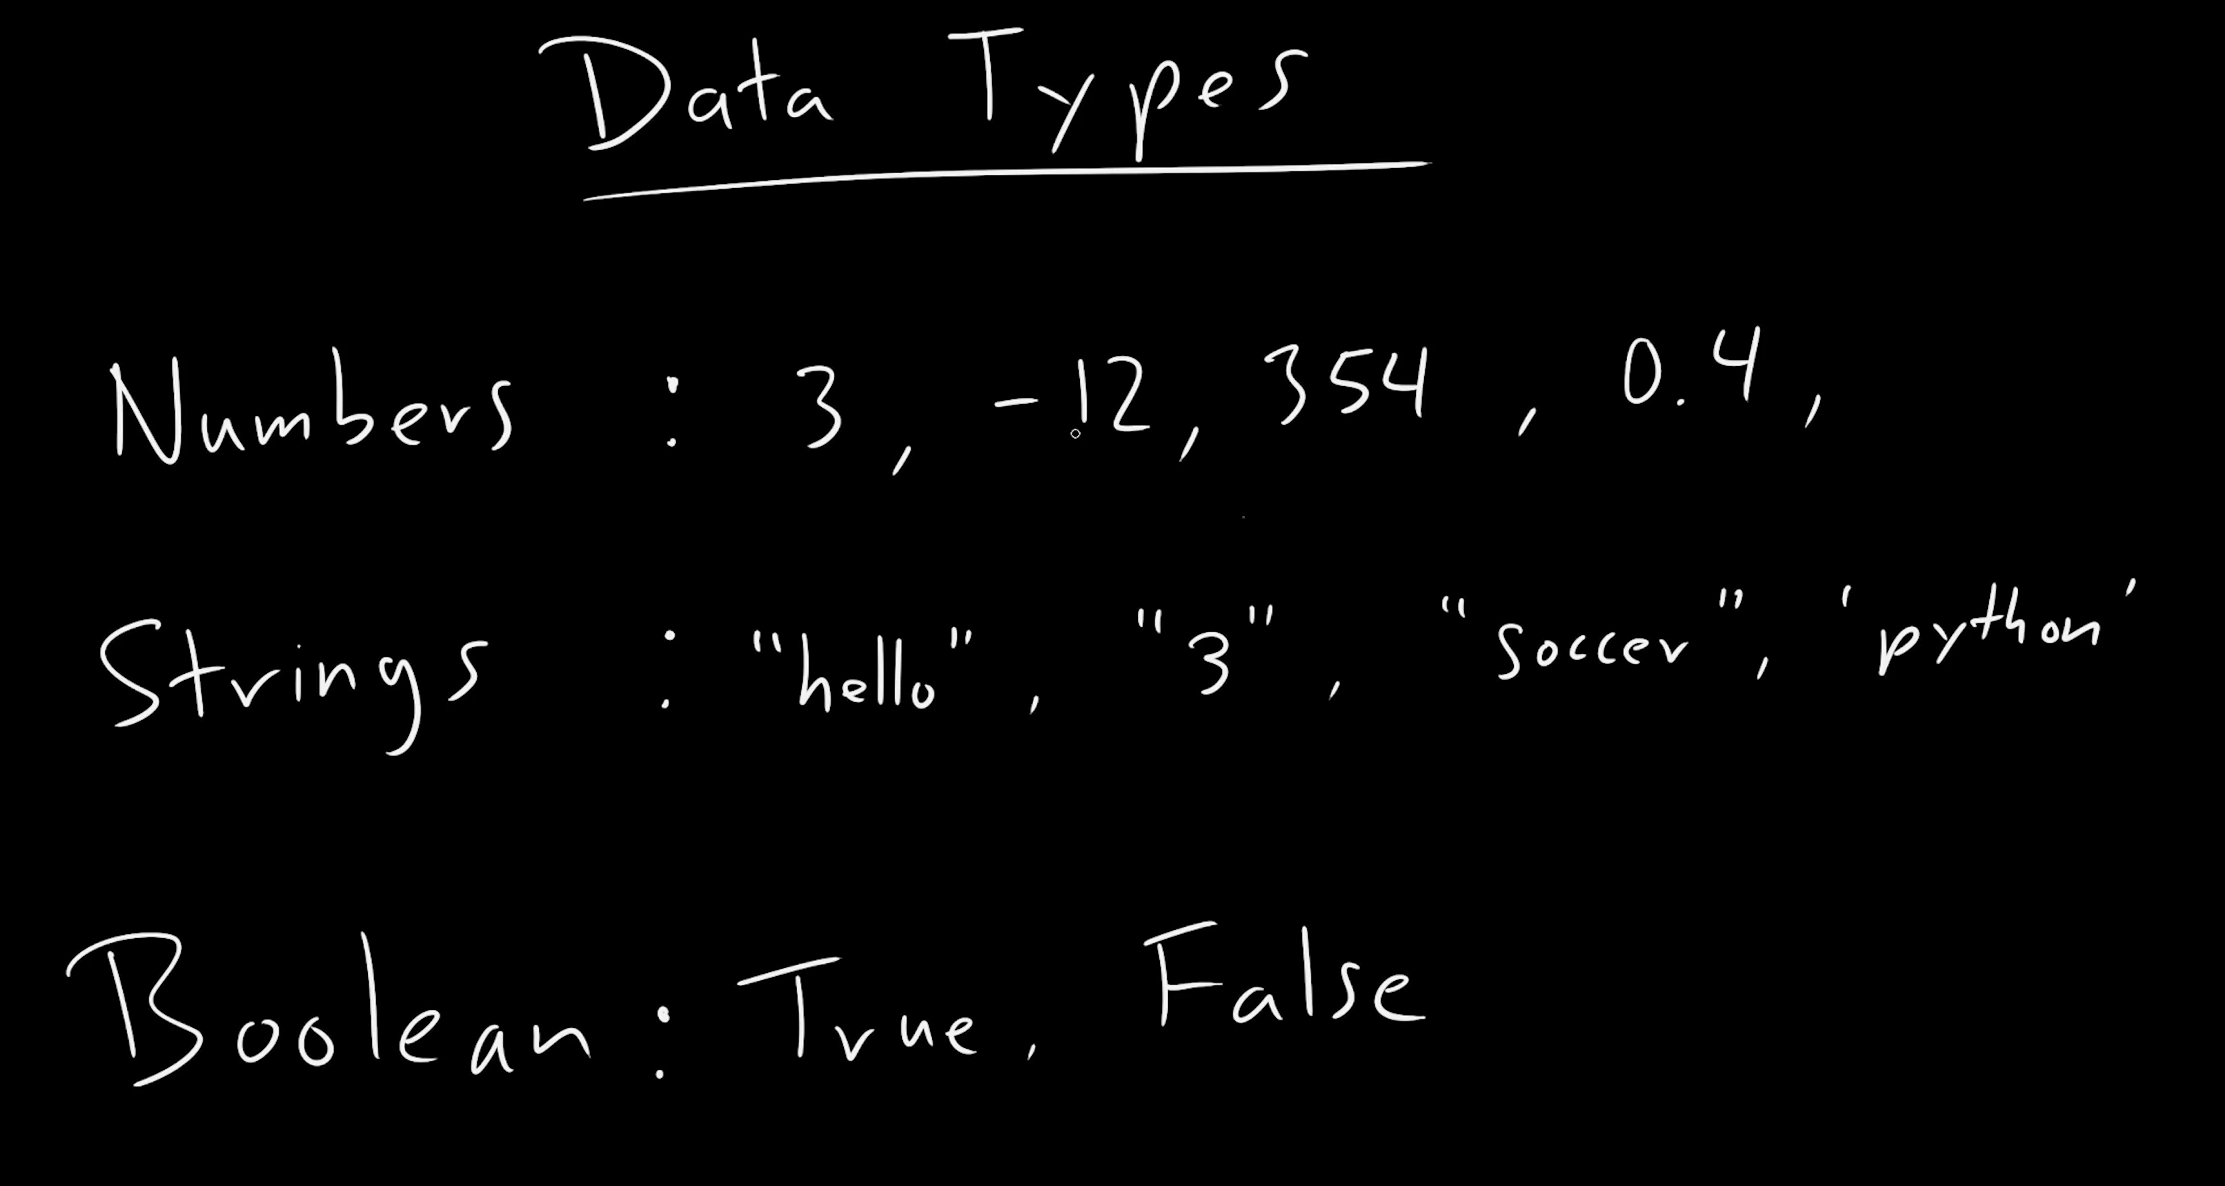 Data Types
Numbers : 3, -12, 354, 0.4,
Strings : "hello", "3", "soccer", 'python'
Boolean : True, False